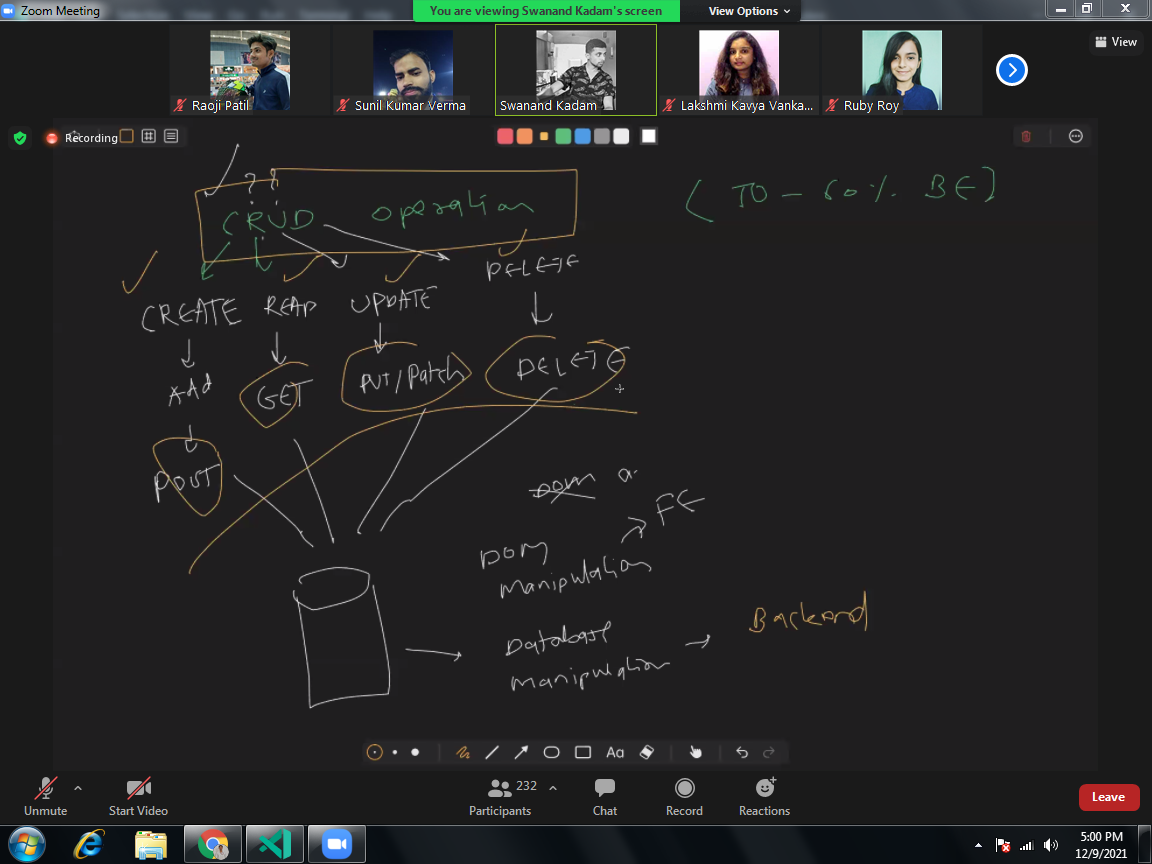 Zoom Meeting
You are viewing Swanand Kadam's screen
View Options
Raoji Patil
Sunil Kumar Verma
Swanand Kadam
Lakshmi Kavya Vanka...
Ruby Roy
View
Recording
??
CRUD operation
( 70 - 60 % BE )
CREATE READ UPDATE DELETE
Add GET PUT/Patch DELETE
POST
DOM
DOM manipulation FE
Database
manipulation Backend
Aa
Unmute
Start Video
Participants
232
Chat
Record
Reactions
Leave
5:00 PM
12/9/2021